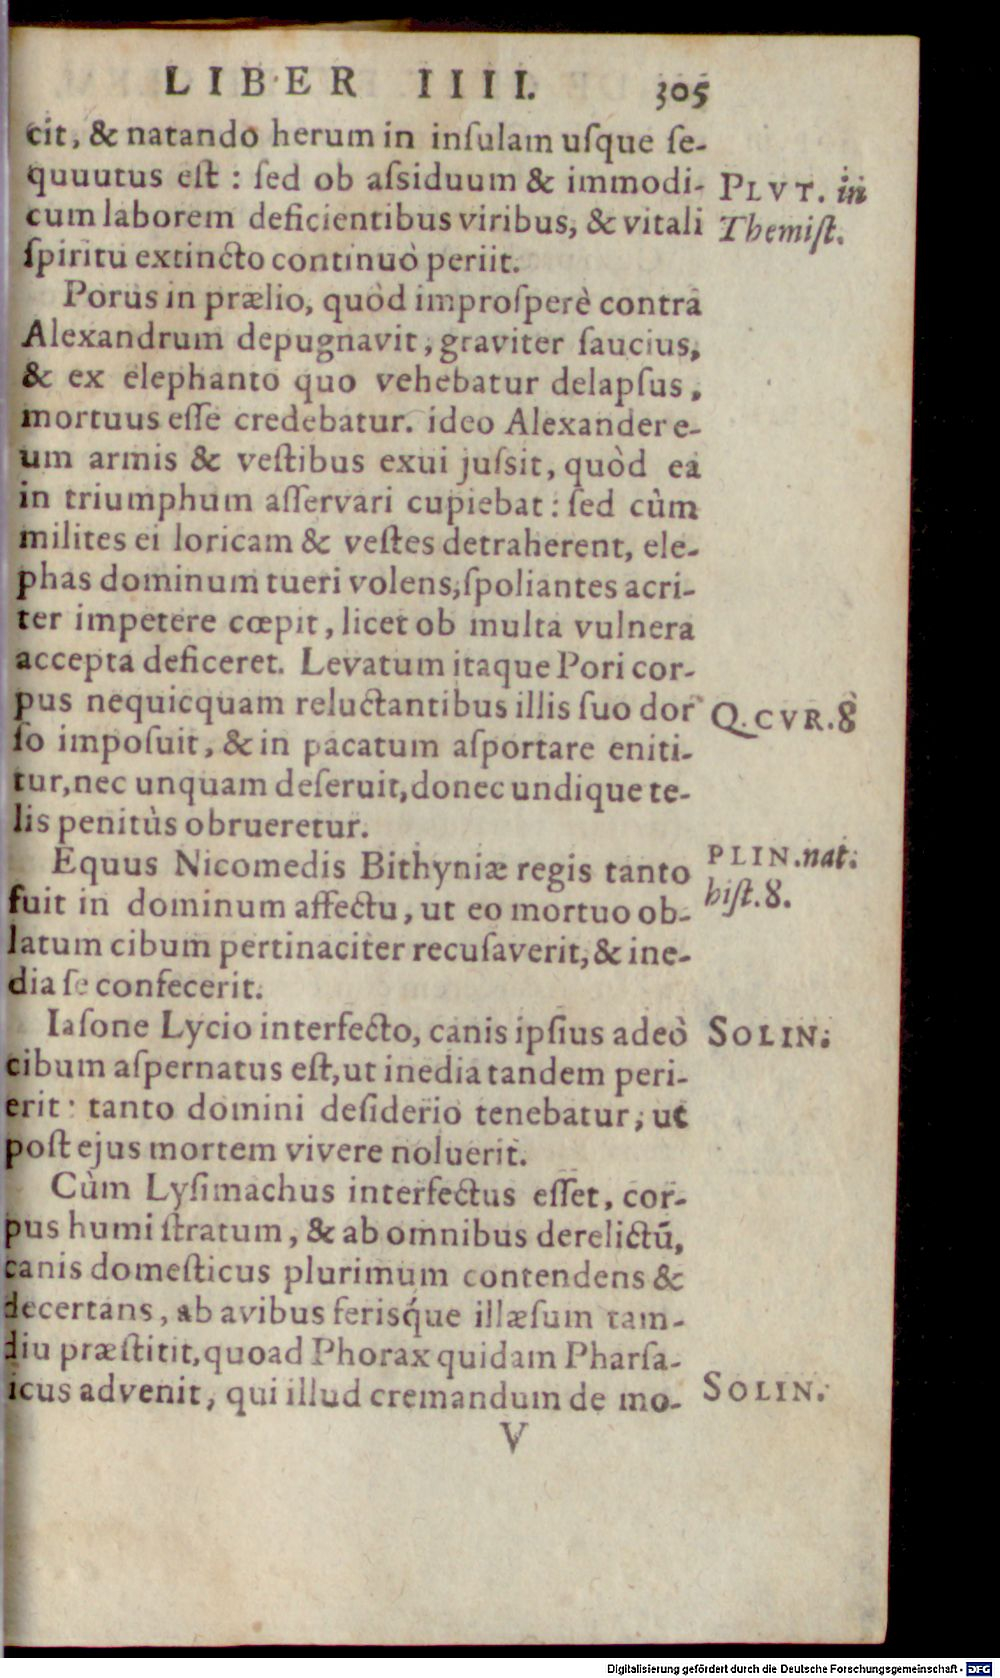 LIBER IIII. 305
cit, & natando herum in inſulam uſque ſe-
quuutus eſt : ſed ob aſsiduum & immodi-
PLVT. in
cum laborem deficientibus viribus, & vitali
Themiſt.
ſpiritu extincto continuò periit.
Porus in prælio, quòd improſperè contra
Alexandrum depugnavit, graviter ſaucius,
& ex elephanto quo vehebatur delapſus,
mortuus eſſe credebatur. ideo Alexander e-
um armis & veſtibus exui juſsit, quòd ea
in triumphum aſſervari cupiebat : ſed cùm
milites ei loricam & veſtes detraherent, ele-
phas dominum tueri volens, ſpoliantes acri-
ter impetere cœpit, licet ob multa vulnera
accepta deficeret. Levatum itaque Pori cor-
pus nequicquam reluctantibus illis ſuo dor
Q. CVR. 8
ſo impoſuit, & in pacatum aſportare eniti-
tur, nec unquam deſeruit, donec undique te-
lis penitùs obrueretur.
Equus Nicomedis Bithyniæ regis tanto
PLIN. nat.
fuit in dominum affectu, ut eo mortuo ob-
hiſt. 8.
latum cibum pertinaciter recuſaverit, & ine-
dia ſe confecerit.
Iaſone Lycio interfecto, canis ipſius adeò
SOLIN.
cibum aſpernatus eſt, ut inedia tandem peri-
erit : tanto domini deſiderio tenebatur, ut
poſt ejus mortem vivere noluerit.
Cùm Lyſimachus interfectus eſſet, cor-
pus humi ſtratum, & ab omnibus derelictū,
canis domeſticus plurimum contendens &
decertans, ab avibus feriſq́ue illæſum tam-
diu præſtitit, quoad Phorax quidam Pharſa-
icus advenit, qui illud cremandum de mo-
SOLIN.
V
Digitalisierung gefördert durch die Deutsche Forschungsgemeinschaft - DFG